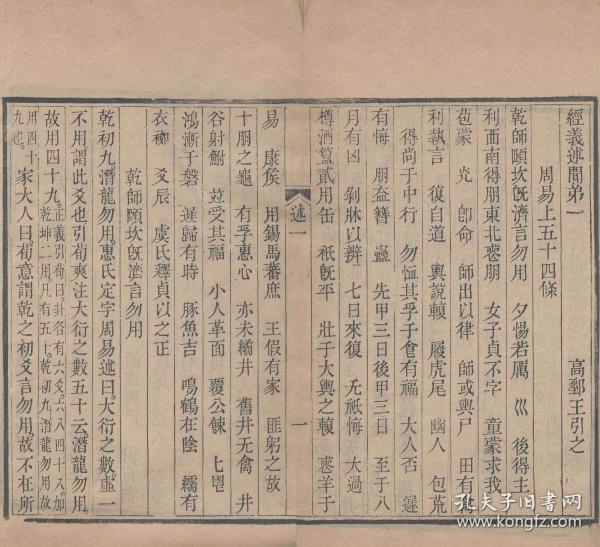 經義述聞弟一
高郵王引之
周易上五十四條
乾師頤坎旣濟言勿用 夕惕若厲 巛 後得主
利西南得朋東北喪朋 女子貞不字 童蒙求我
苞蒙 光 卽命 師出以律 師或輿尸 田有禽
利執言 復自道 輿說輹 履虎尾 幽人 包荒
得尚于中行 勿恤其孚于食有福 大人否 遲
有悔 朋盍簪 蠱 先甲三日後甲三日 至于八
月有凶 剝牀以辨 七日來復 无祇悔 大過
樽酒簋貳用缶 祇旣平 壯于大輿之輹 喪羊于
述一
一
易 康矦 用錫馬蕃庶 王假有家 匪躬之故
十朋之龜 有孚惠心 亦未繘井 舊井无禽 井
谷射鮒 竝受其福 小人革面 覆公餗 匕鬯
鴻漸于磐 遲歸有時 豚魚吉 鳴鶴在陰 繻有
衣袽 爻辰 虞氏釋貞以之正
乾師頤坎旣濟言勿用
乾初九潛龍勿用。惠氏定宇周易述曰。大衍之數。虛一
不用。謂此爻也。引荀爽注大衍之數五十云。潛龍勿用。
故用四十九。正義引荀曰。卦各有六爻。六八四十八。加
乾坤二用。凡有五十。乾初九潛龍勿用。故
用四十
九也。家大人曰。荀意謂乾之初爻言勿用。故不在所
孔夫子旧书网
www.kongfz.com